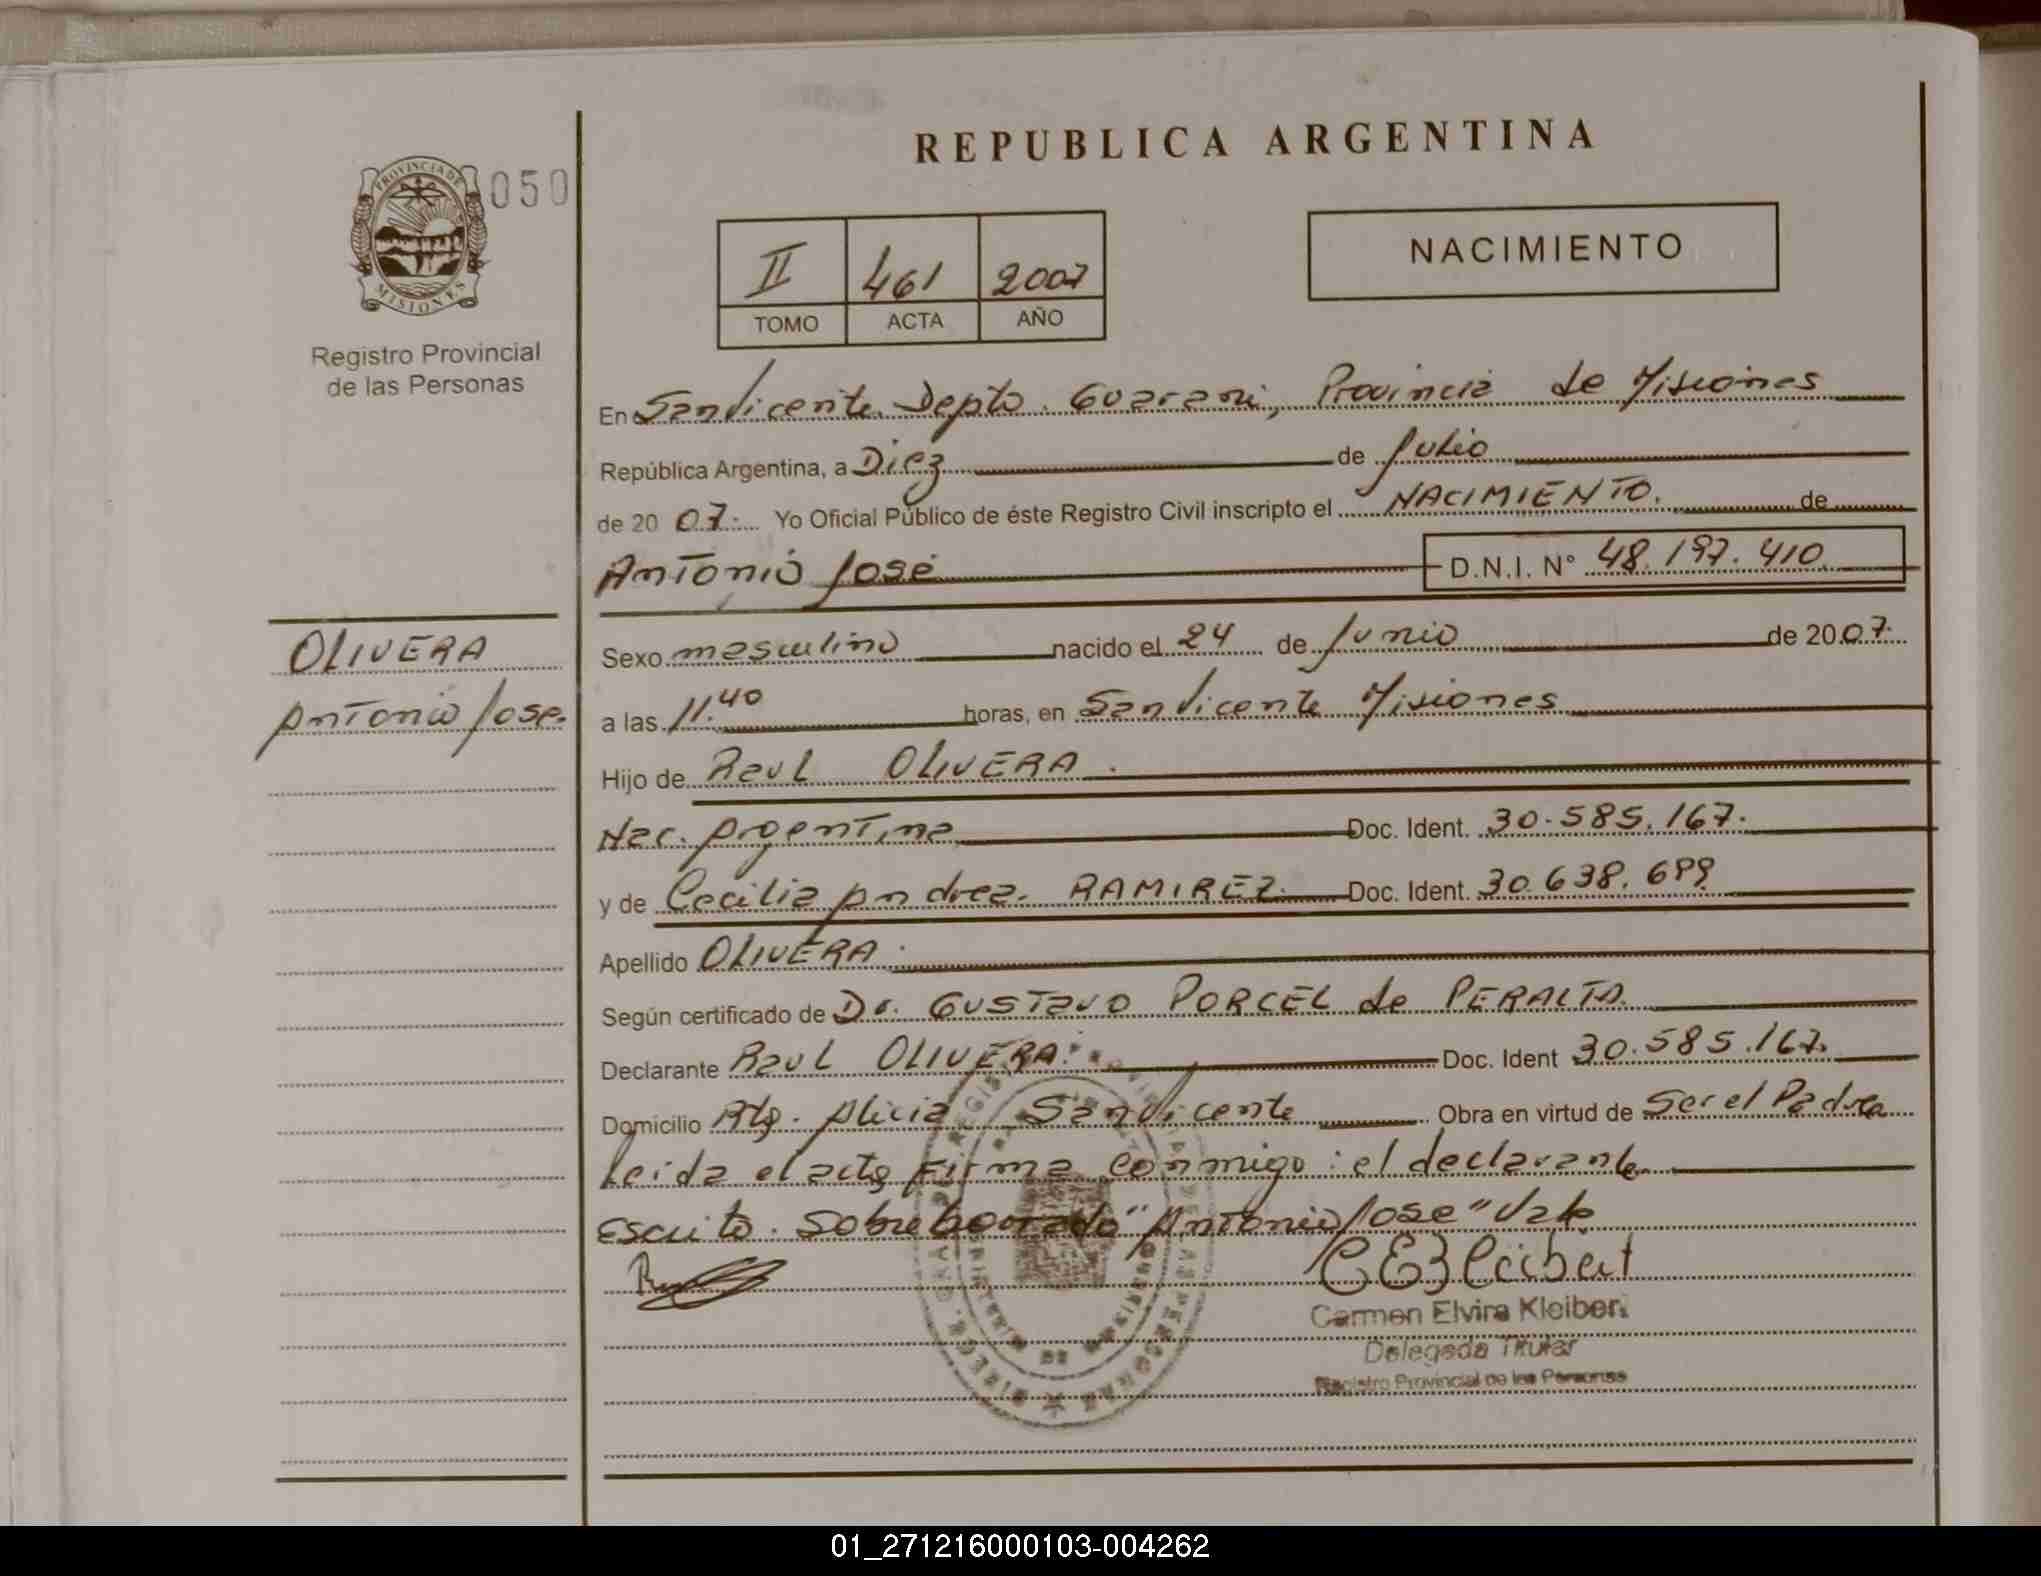 REPUBLICA ARGENTINA
PROVINCIA DE
MISIONES
050
Registro Provincial
de las Personas
II 461 2007
TOMO ACTA AÑO
NACIMIENTO
En San Vicente. Depto. Guarani, Provincia de Misiones
República Argentina, a Diez de Julio
de 2007. Yo Oficial Público de éste Registro Civil inscripto el NACIMIENTO. de
Antonio José D.N.I. N° 48.197.410
OLIVERA
Antonio Jose.
Sexo masculino nacido el 24 de Junio de 2007.
a las 11.40 horas, en San Vicente Misiones
Hijo de Raul OLIVERA.
Nac. Argentina Doc. Ident. 30.585.167.
y de Cecilia Andrea. RAMIREZ. Doc. Ident. 30.638.699
Apellido OLIVERA.
Según certificado de Dr. Gustavo PORCEL de PERALTA.
Declarante Raul OLIVERA. Doc. Ident 30.585.167.
Domicilio Alicia San Vicente Obra en virtud de Ser el Padre
Leida el acta firma conmigo: el declarante
Escrito. Sobre borrado "Antonio Jose" Vale
Carmen Elvira Kleibert
Delegada Titular
Registro Provincial de las Personas
01_271216000103-004262